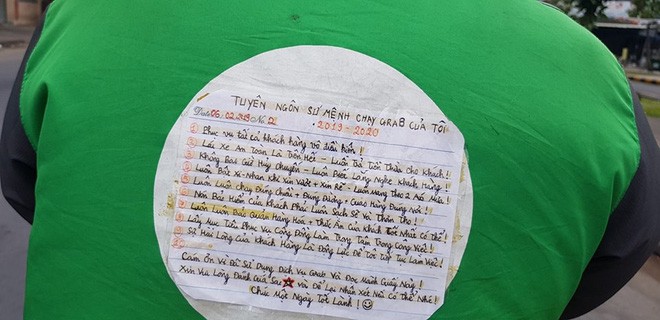 TUYÊN NGÔN SỨ MỆNH CHẠY GRAB CỦA TÔI
Date 06.02.2019 No. 2
• 2019 - 2020
① Phục vụ tất cả khách hàng vô điều kiện!
② Lái Xe An Toàn Là Trên Hết - Luôn Bảo Trọng Thân Cho Khách!
③ Không Bao Giờ Hủy Chuyến - Luôn Biết Lắng Nghe Khách Hàng!
④ Luôn Bật Xi-Nhan Khi xin vượt + Xin Rẽ - Luôn mang theo 2 Áo Mưa!
⑤ Luôn Luôn Chạy Đúng Chuẩn + Đúng Đường + Giao Hàng Đúng nơi!
⑥ Nón Bảo Hiểm Của Khách Phải Luôn Sạch Sẽ Và Thơm Tho!
⑦ Luôn Luôn Bảo Quản Hàng Hóa + Thức Ăn Của khách Tốt Nhất Có thể!
⑧ Lấy Mục Tiêu Phục Vụ Cộng Đồng Làm Trọng Tâm Trong Công Việc!
⑨ Sự Hài Lòng Của Khách Hàng Là Động Lực Để Tôi Tiếp Tục Làm Việc!
Cảm Ơn Vì Đã Sử Dụng Dịch Vụ Grab Và Đọc Mảnh Giấy Này!
Xin Vui Lòng Đánh Giá Sao ★ Và Để Lại Nhận Xét Nếu Có Thể Nhé!
Chúc Một Ngày Tốt Lành! ☺